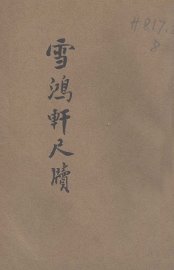 雪鴻軒尺牘
#817.
8